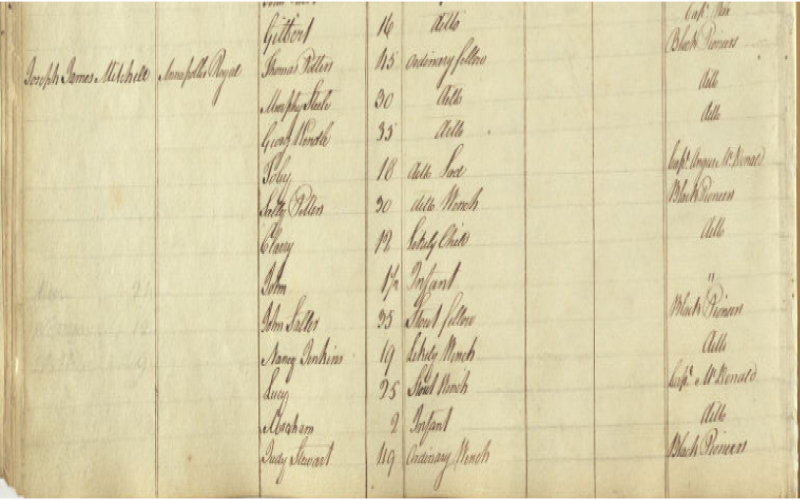 Gilbert 16 ditto Capt.
Joseph James Mitchell Annapolis Royal Thomas Peters 45 Ordinary fellow Black Pioneers
Murphy Steele 30 ditto ditto
George 35 ditto ditto
Toby 18 ditto Lad Capt. Angus McDonald
Sally Peters 30 ditto Wench Black Pioneers
Clary 12 Likely Child ditto
John 1½ Infant "
John Salter 35 Stout fellow Black Pioneers
Nancy Jenkins 19 Likely Wench ditto
Lucy 25 Stout Wench Capt. McDonald
Abraham 2 Infant ditto
Judy Stewart 49 Ordinary Wench Black Pioneers